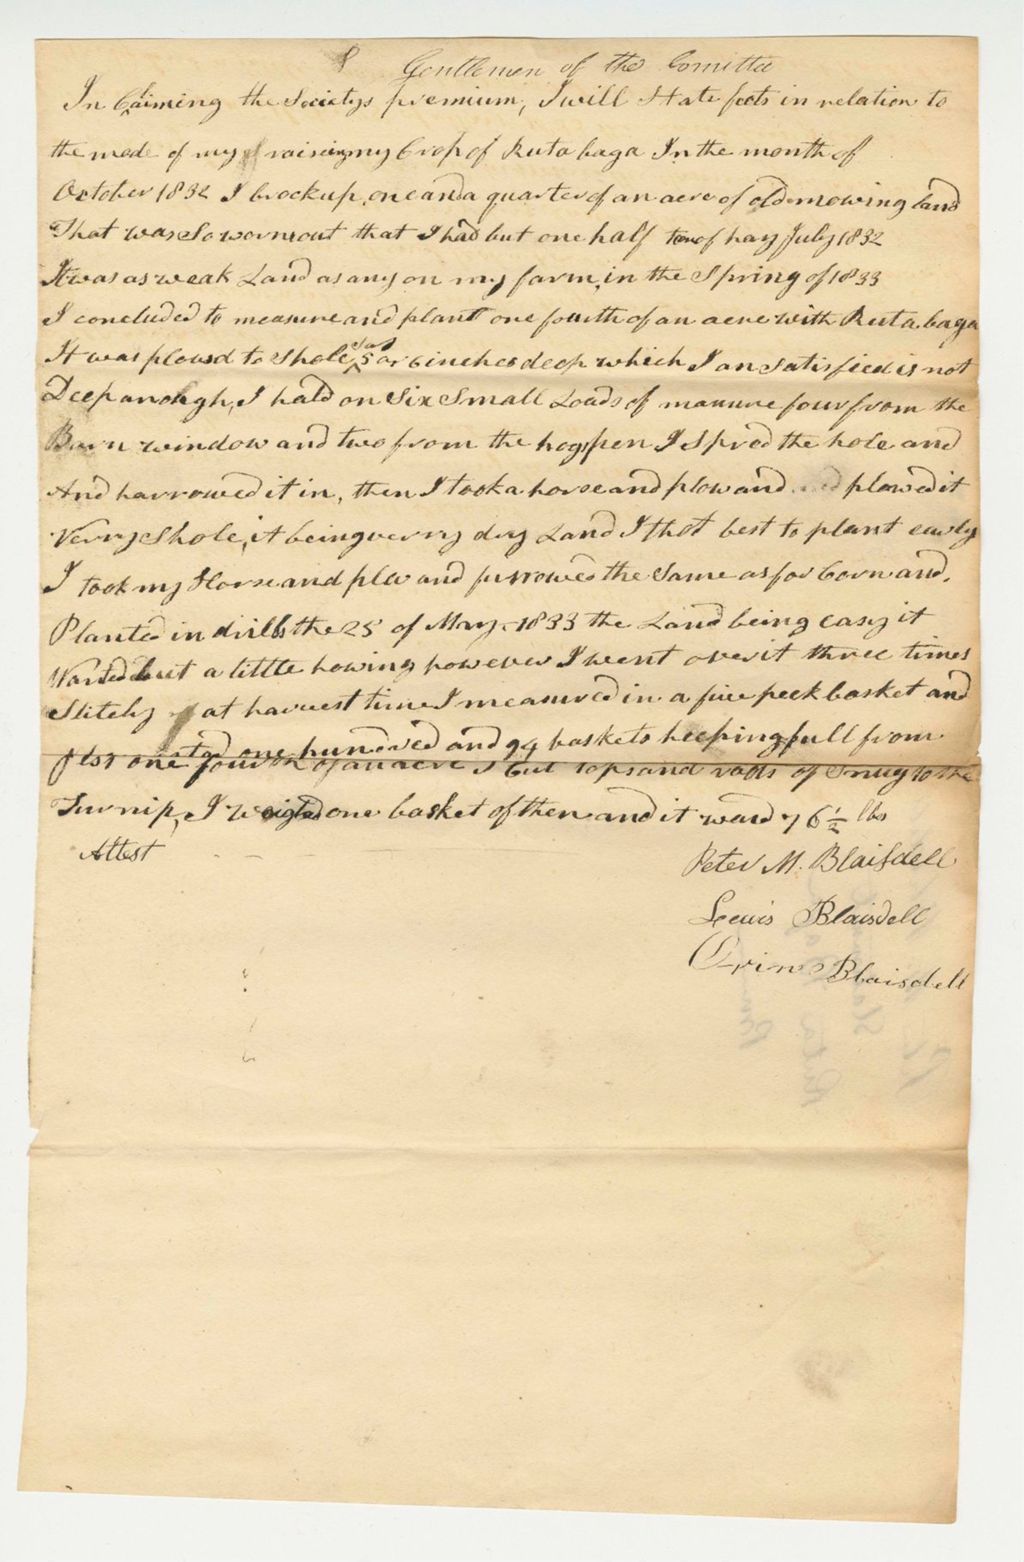 Gentlemen of the Comittee
In Claiming the Societys premium, I will State facts in relation to
the mode of my raising my Crop of Ruta baga In the month of
October 1832 I brock up, one and a quarter of an acre of old mowing land
That was So worn out that I had but one half ton of hay July 1832
It was as weak Land as any on my farm, in the Spring of 1833
I concluded to measure and plant one fourth of an acre with Ruta baga
It was plowd to Shole, 5 or 6 inches deep which I an Satisfied is not
Deep anough, I hald on Six Small Loads of manure four from the
Barn window and two from the hogpen I Spred the hole and
And harrowed it in, then I took a horse and plow and plowed it
Verry Shole, it being verry dry Land I thot best to plant early
I took my Horse and plow and furrowed the Same as for Corn and,
Planted in drills the 25 of May 1833 the Land being easy it
Wanted but a little howing however I went over it three times
Slitely at harvest time I measured in a five peek basket and
one hundred and 94 baskets heeping full from
one fourth of an acre I Cut tops and roots of Snug to the
Turnip, I weighed one basket of then and it ward 76 1/2 lbs
Attest
Peter M. Blaisdell
Lewis Blaisdell
Orin Blaisdell